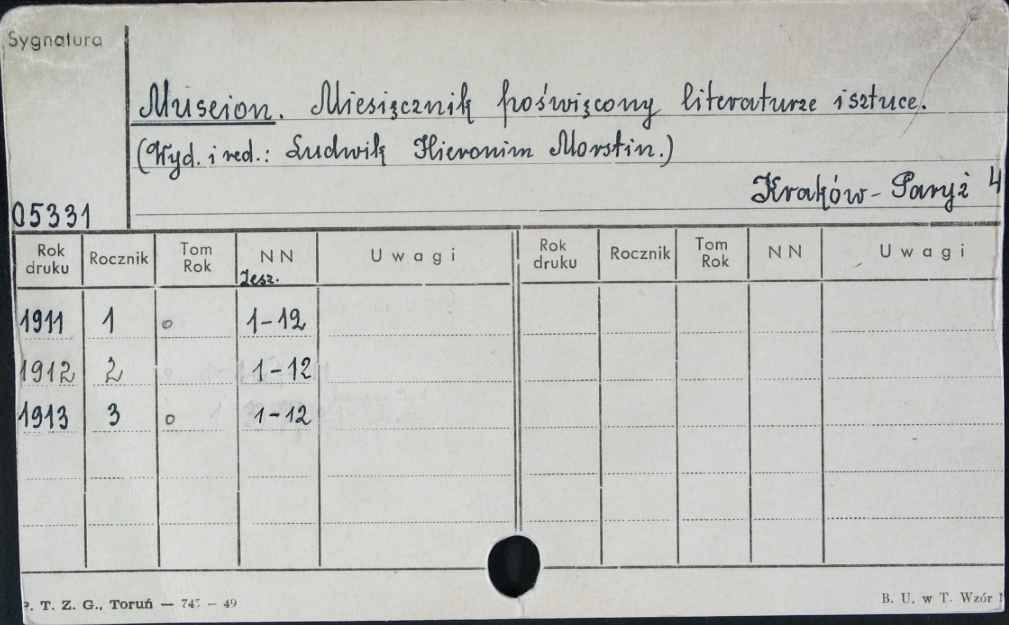 Sygnatura
Museion. Miesięcznik poświęcony literaturze i sztuce.
(Wyd. i red.: Ludwik Hieronim Morstin.)
Kraków - Paryż 4
05331
Rok druku Rocznik Tom Rok NN Zesz. Uwagi Rok druku Rocznik Tom Rok NN Uwagi
1911 1 o 1-12
1912 2 1-12
1913 3 o 1-12
P. T. Z. G., Toruń — 747 — 49 B. U. w T. Wzór